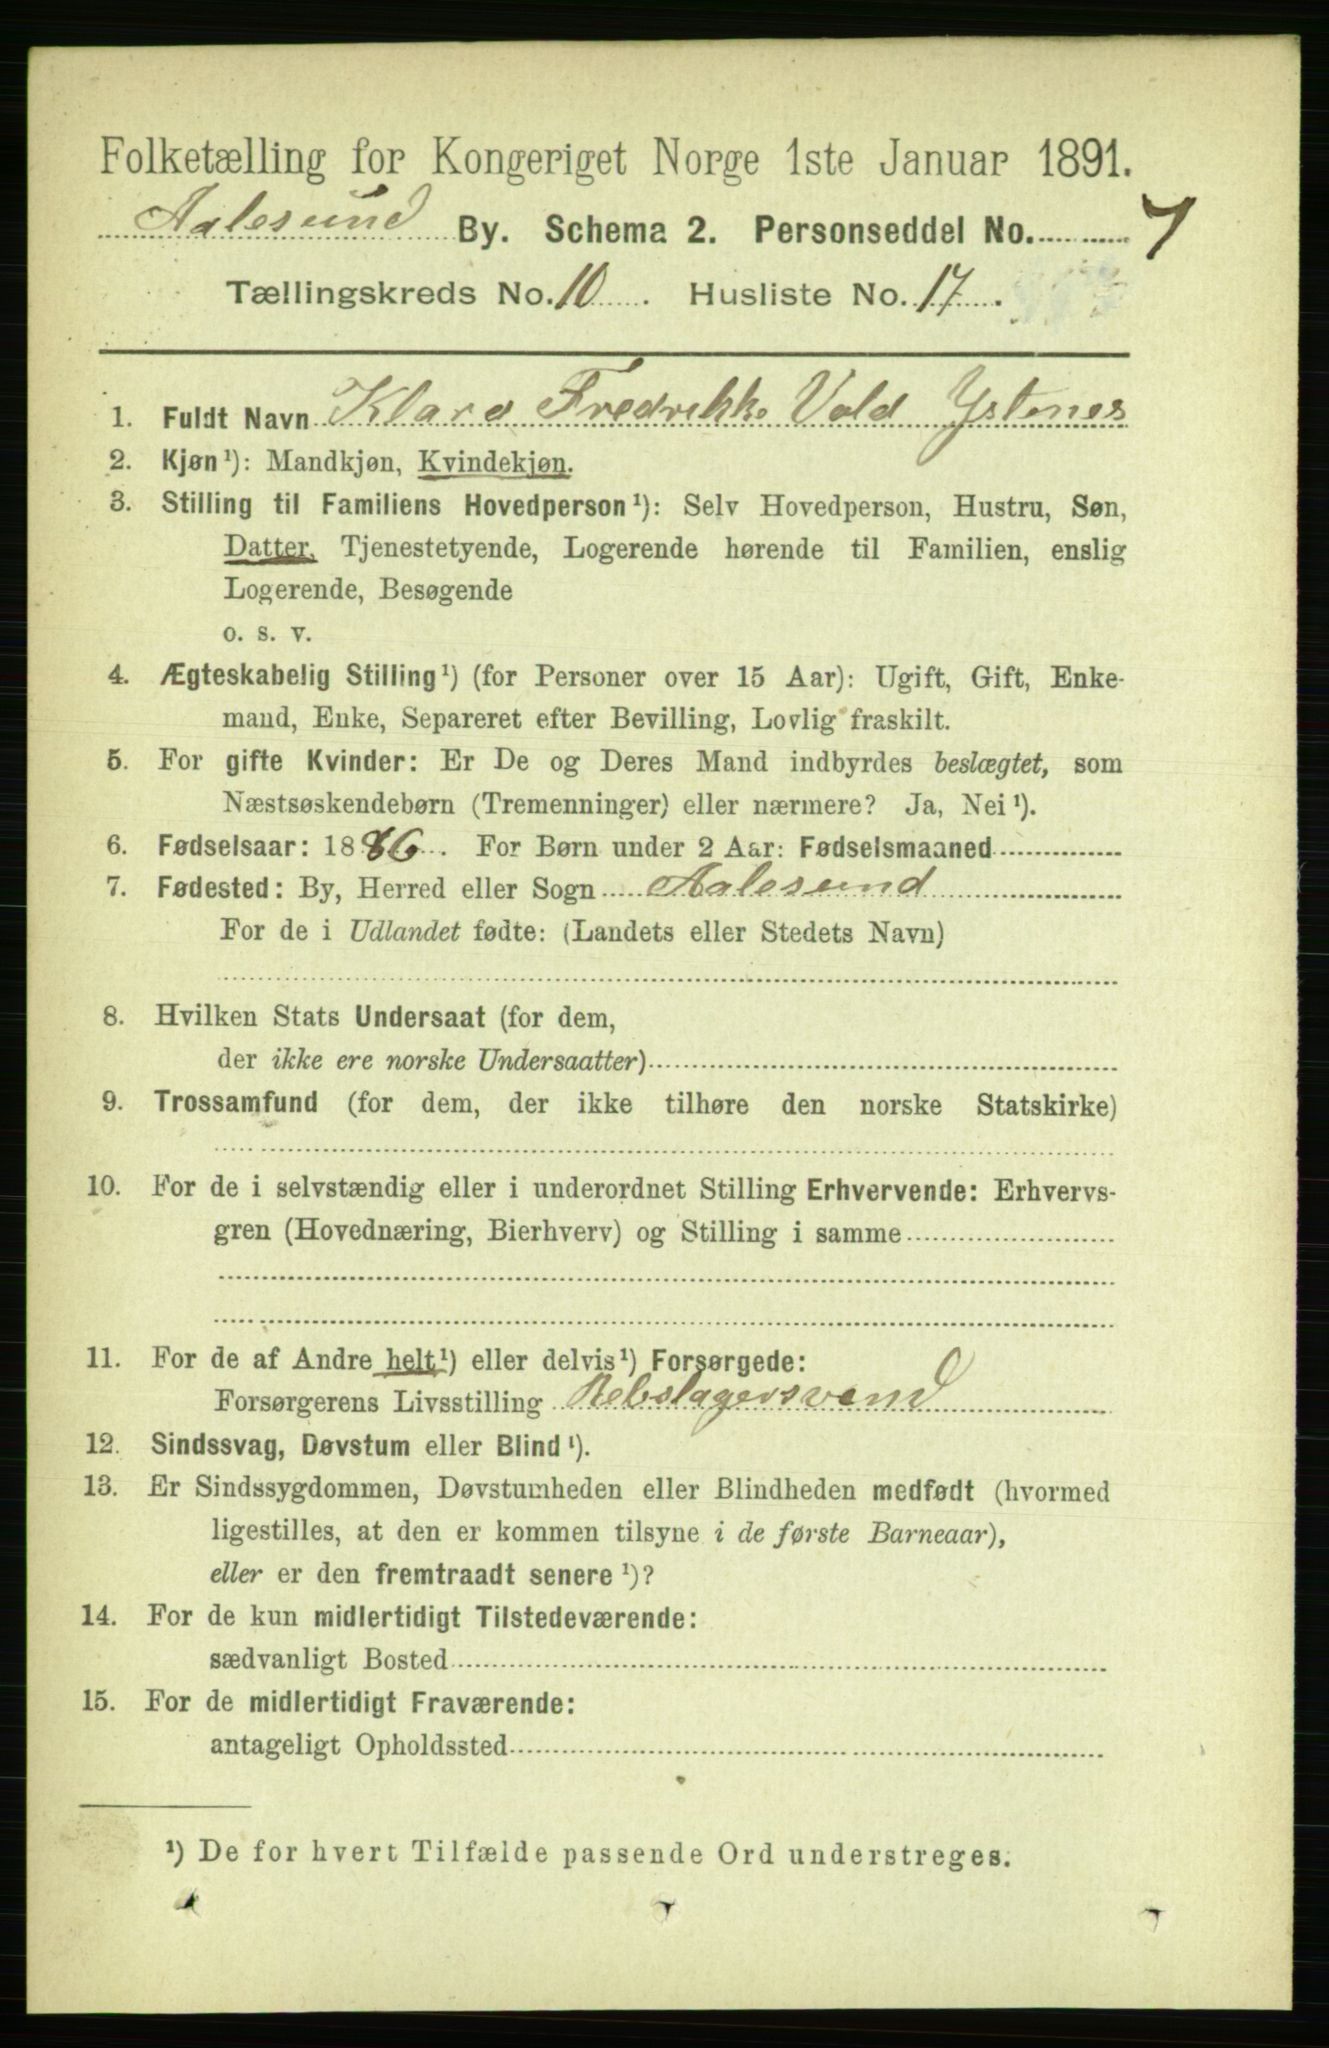 Folketælling for Kongeriget Norge 1ste Januar 1891.
Aalesund By. Schema 2. Personseddel No. 7
Tællingskreds No. 10. Husliste No. 17.
1. Fuldt Navn Klara Fredrikke Vold Ystenes
2. Kjøn¹): Mandkjøn, Kvindekjøn.
3. Stilling til Familiens Hovedperson¹): Selv Hovedperson, Hustru, Søn,
Datter, Tjenestetyende, Logerende hørende til Familien, enslig
Logerende, Besøgende
o. s. v.
4. Ægteskabelig Stilling¹) (for Personer over 15 Aar): Ugift, Gift, Enke-
mand, Enke, Separeret efter Bevilling, Lovlig fraskilt.
5. For gifte Kvinder: Er De og Deres Mand indbyrdes beslægtet, som
Næstsøskendebørn (Tremenninger) eller nærmere? Ja, Nei¹).
6. Fødselsaar: 1886. For Børn under 2 Aar: Fødselsmaaned
7. Fødested: By, Herred eller Sogn Aalesund
For de i Udlandet fødte: (Landets eller Stedets Navn)
8. Hvilken Stats Undersaat (for dem,
der ikke ere norske Undersaatter)
9. Trossamfund (for dem, der ikke tilhøre den norske Statskirke)
10. For de i selvstændig eller i underordnet Stilling Erhvervende: Erhvervs-
gren (Hovednæring, Bierhverv) og Stilling i samme
11. For de af Andre helt¹) eller delvis¹) Forsørgede:
Forsørgerens Livsstilling Rebslagersvend
12. Sindssvag, Døvstum eller Blind¹).
13. Er Sindssygdommen, Døvstumheden eller Blindheden medfødt (hvormed
ligestilles, at den er kommen tilsyne i de første Barneaar),
eller er den fremtraadt senere¹)?
14. For de kun midlertidigt Tilstedeværende:
sædvanligt Bosted
15. For de midlertidigt Fraværende:
antageligt Opholdssted
¹) De for hvert Tilfælde passende Ord understreges.